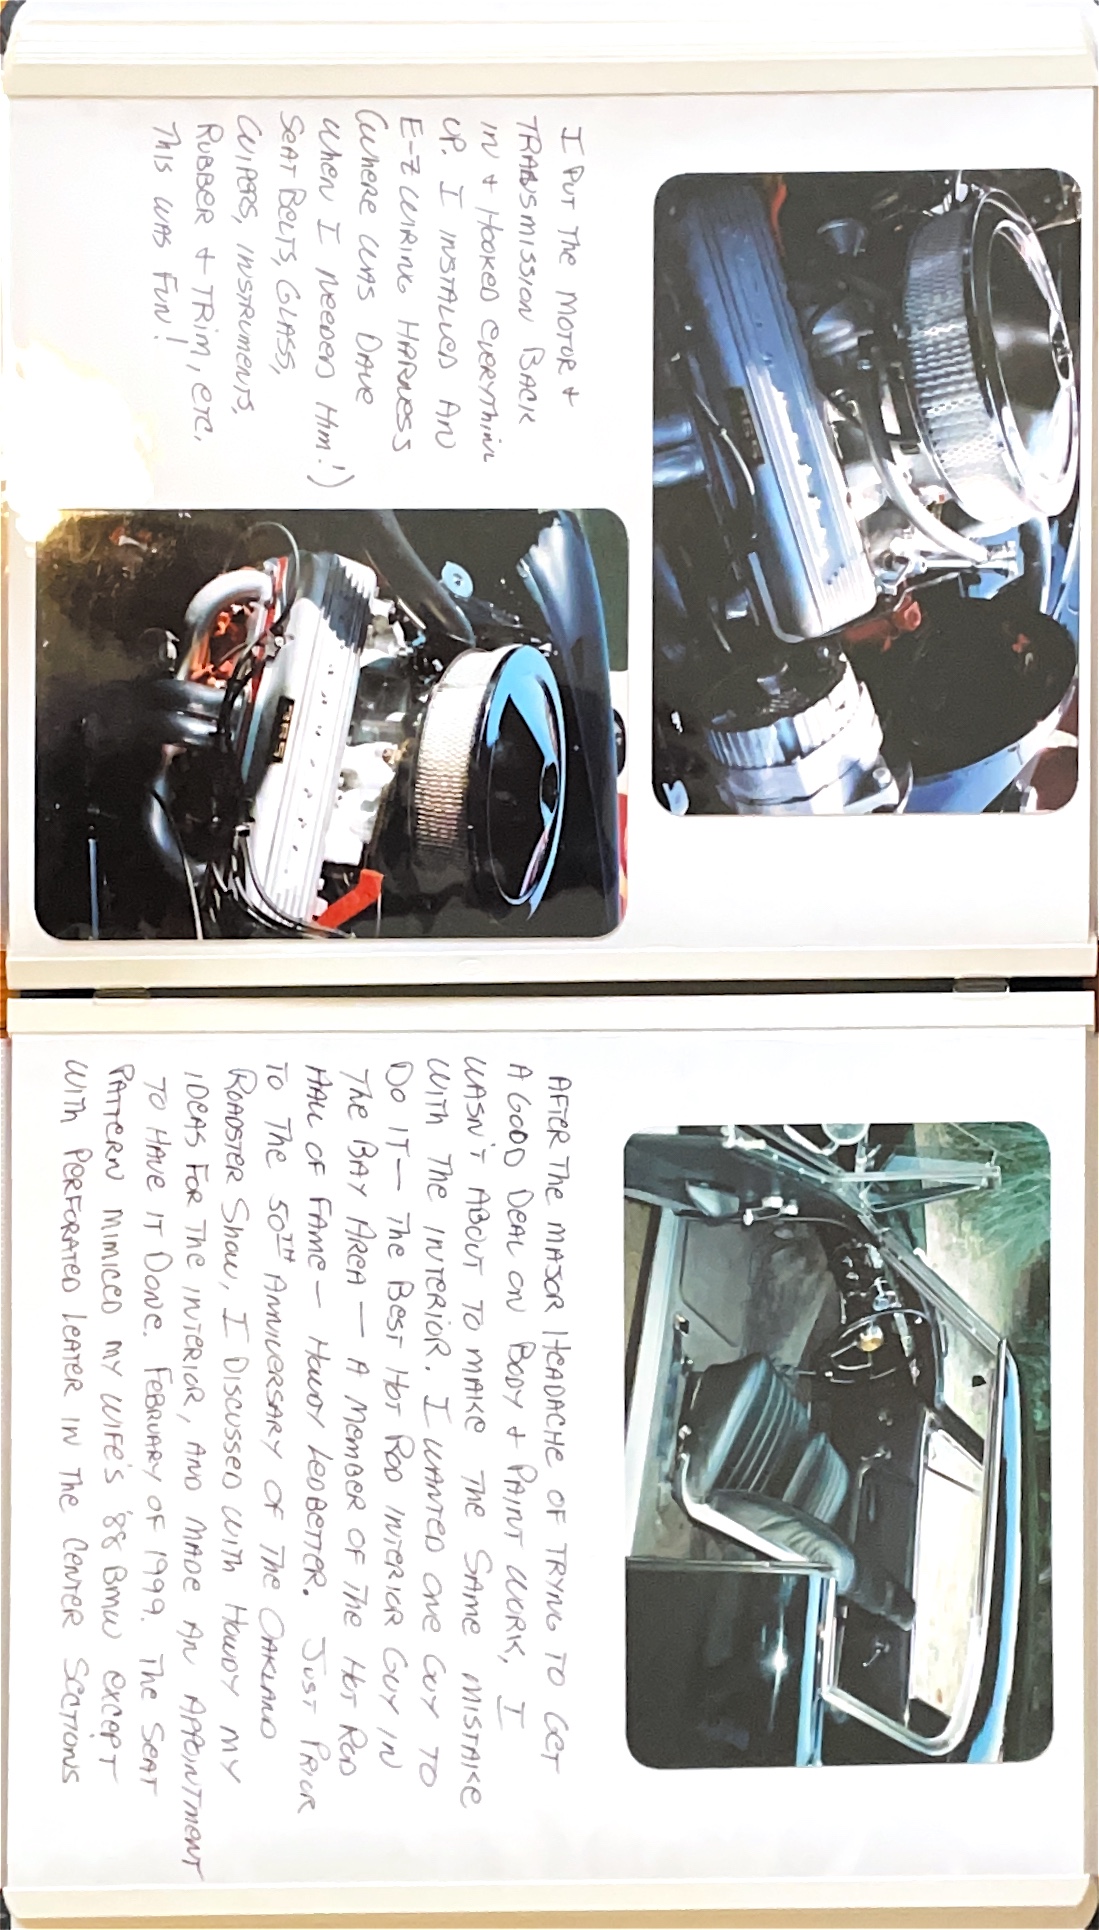 I PUT THE MOTOR +
TRANSMISSION BACK
IN + HOOKED EVERYTHING
UP. I INSTALLED AN
E-Z WIRING HARNESS
(WHERE WAS DAVE
WHEN I NEEDED HIM!)
SEAT BELTS, GLASS,
WIPERS, INSTRUMENTS,
RUBBER + TRIM, ETC.
THIS WAS FUN!
AFTER THE MAJOR HEADACHE OF TRYNG TO GET
A GOOD DEAL ON BODY + PAINT WORK, I
WASN'T ABOUT TO MAKE THE SAME MISTAKE
WITH THE INTERIOR. I WANTED ONE GUY TO
DO IT— THE BEST HOT ROD INTERIOR GUY IN
THE BAY AREA — A MEMBER OF THE HOT ROD
HALL OF FAME — HOWDY LEDBETTER. JUST PRIOR
TO THE 50TH ANNIVERSARY OF THE OAKLAND
ROADSTER SHOW, I DISCUSSED WITH HOWDY MY
IDEAS FOR THE INTERIOR, AND MADE AN APPOINTMENT
TO HAVE IT DONE. FEBRUARY OF 1999. THE SEAT
PATTERN MIMICED MY WIFE'S '88 BMW EXCEPT
WITH PERFORATED LEATER IN THE CENTER SECTIONS